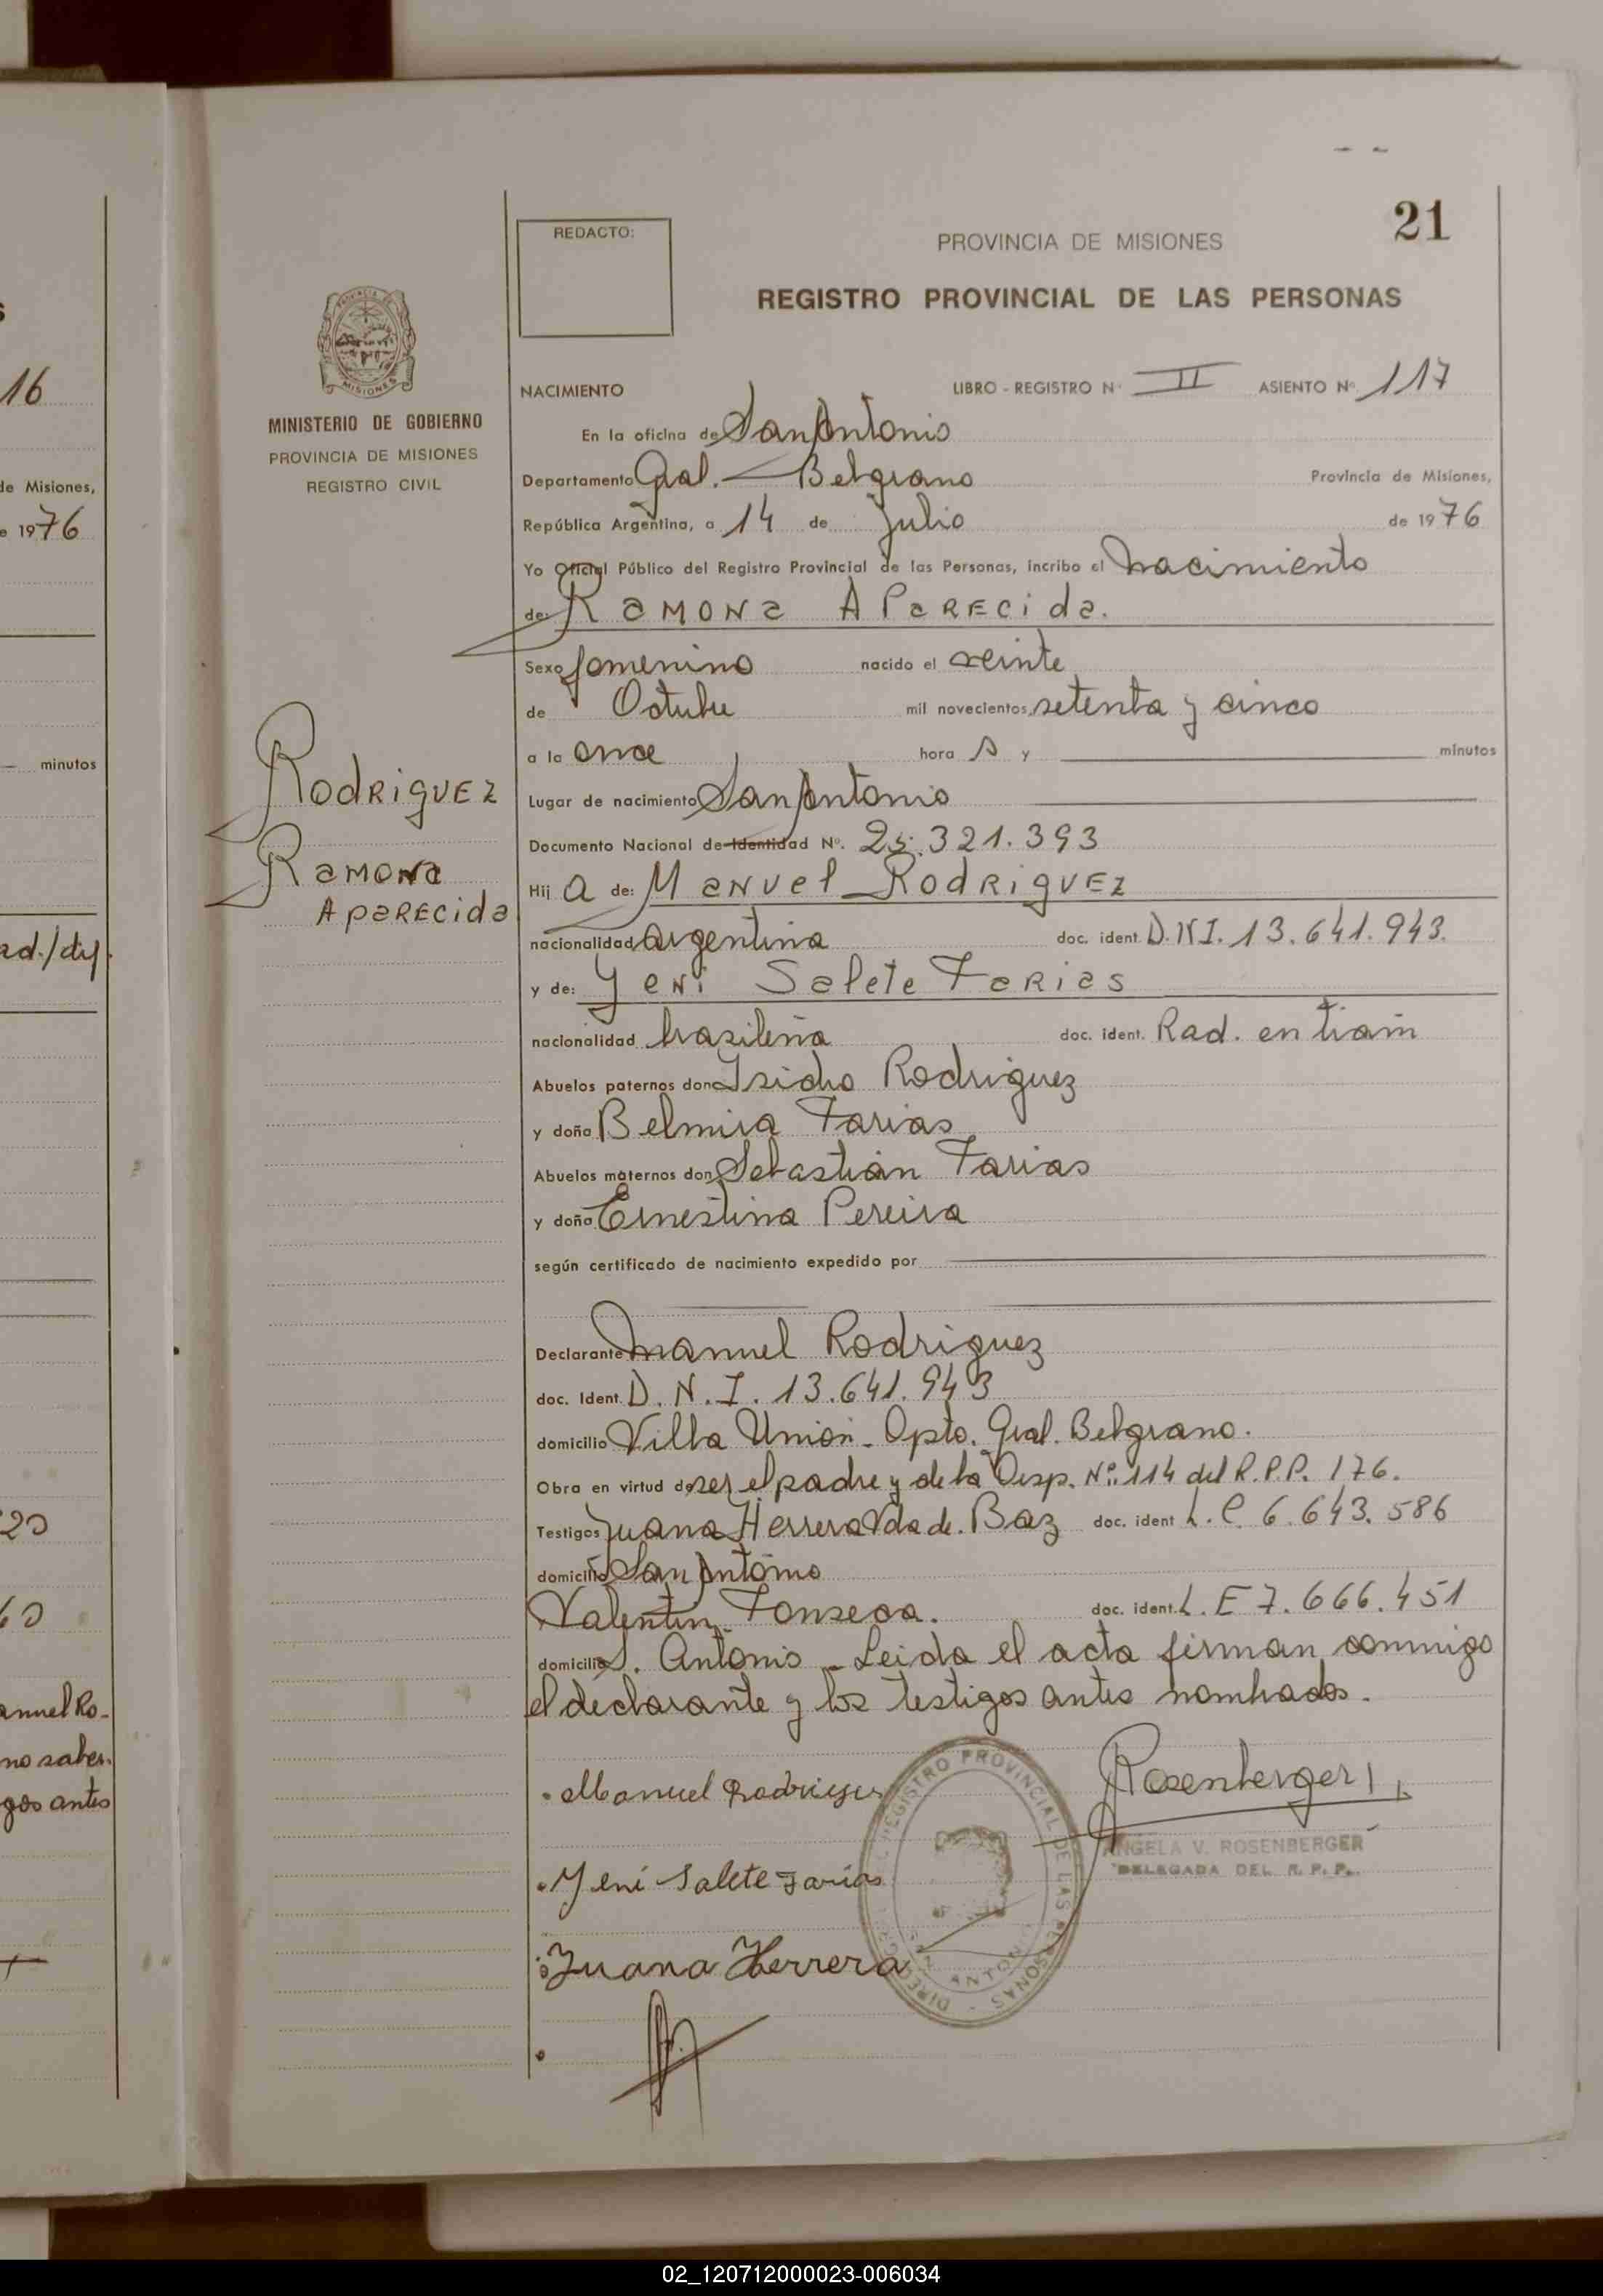 16
de Misiones,
e 1976
minutos
ad./dif.
20
60
anuel Ro-
no saber
gos antes
21
REDACTO:
PROVINCIA DE MISIONES
REGISTRO PROVINCIAL DE LAS PERSONAS
PROVINCIA DE
MISIONES
MINISTERIO DE GOBIERNO
PROVINCIA DE MISIONES
REGISTRO CIVIL
Rodriguez
Ramona
Aparecida
NACIMIENTO LIBRO - REGISTRO N° II ASIENTO N° 117
En la oficina de San Antonio
Departamento Gral. Belgrano Provincia de Misiones,
República Argentina, a 14 de Julio de 1976
Yo Oficial Público del Registro Provincial de las Personas, incribo el nacimiento
de: Ramona Aparecida.
Sexo femenino nacido el veinte
de Octubre mil novecientos setenta y cinco
a la once hora s y minutos
Lugar de nacimiento San Antonio
Documento Nacional de Identidad N°. 25.321.393
Hij a de: Manuel Rodriguez
nacionalidad argentina doc. ident. D.N.I. 13.641.943.
y de: Yeni Salete Farias
nacionalidad brasileña doc. ident. Rad. en tram
Abuelos paternos don Isidro Rodriguez
y doña Belmira Farias
Abuelos maternos don Sebastián Farias
y doña Ernestina Pereira
según certificado de nacimiento expedido por
Declarante Manuel Rodriguez
doc. Ident. D.N.I. 13.641.943
domicilio Villa Unión - Dpto. Gral. Belgrano.
Obra en virtud de ser el padre y de la Disp. N°: 114 del R.P.P. 176.
Testigos Juana Herrera Vda de. Baz doc. ident L.C. 6.643.586
domicilio San Antonio
Valentin Fonseca. doc. ident. L.E 7.666.451
domicilio S. Antonio - Leida el acta firman conmigo
el declarante y los testigos antes nombrados.
Manuel Rodrigues
Rosenberger
ANGELA V. ROSENBERGER
DELEGADA DEL R. P. P.
REGISTRO PROVINCIAL DE LAS PERSONAS
SAN ANTONIO
Yeni Salete Farias
Juana Herrera
02_120712000023-006034